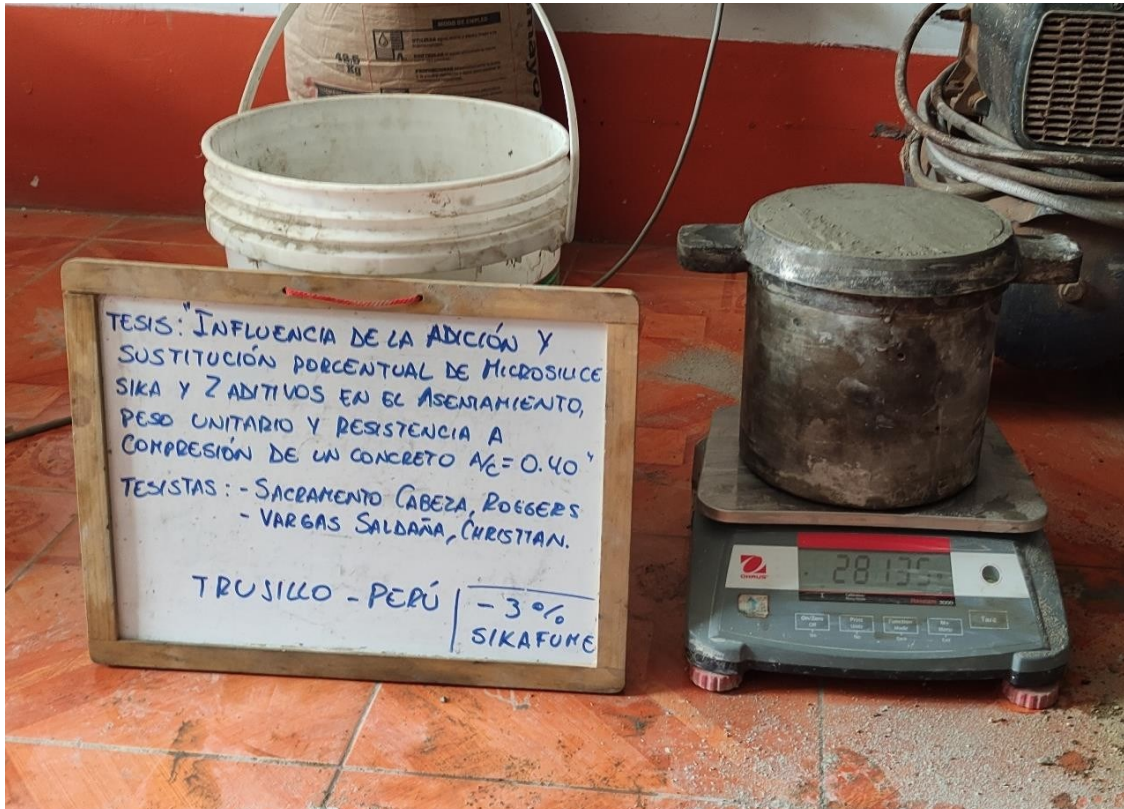 MODO DE EMPLEO
42.5
Kg
TESIS: "INFLUENCIA DE LA ADICIÓN Y
SUSTITUCIÓN PORCENTUAL DE MICROSILICE
SIKA Y 2 ADITIVOS EN EL ASENTAMIENTO,
PESO UNITARIO Y RESISTENCIA A
COMPRESIÓN DE UN CONCRETO A/C = 0.40"
TESISTAS: - SACRAMENTO CABEZA, ROGGERS
- VARGAS SALDAÑA, CHRISTIAN.
TRUJILLO - PERÚ
- 3%
SIKAFUME
OHAUS
28135
Tare